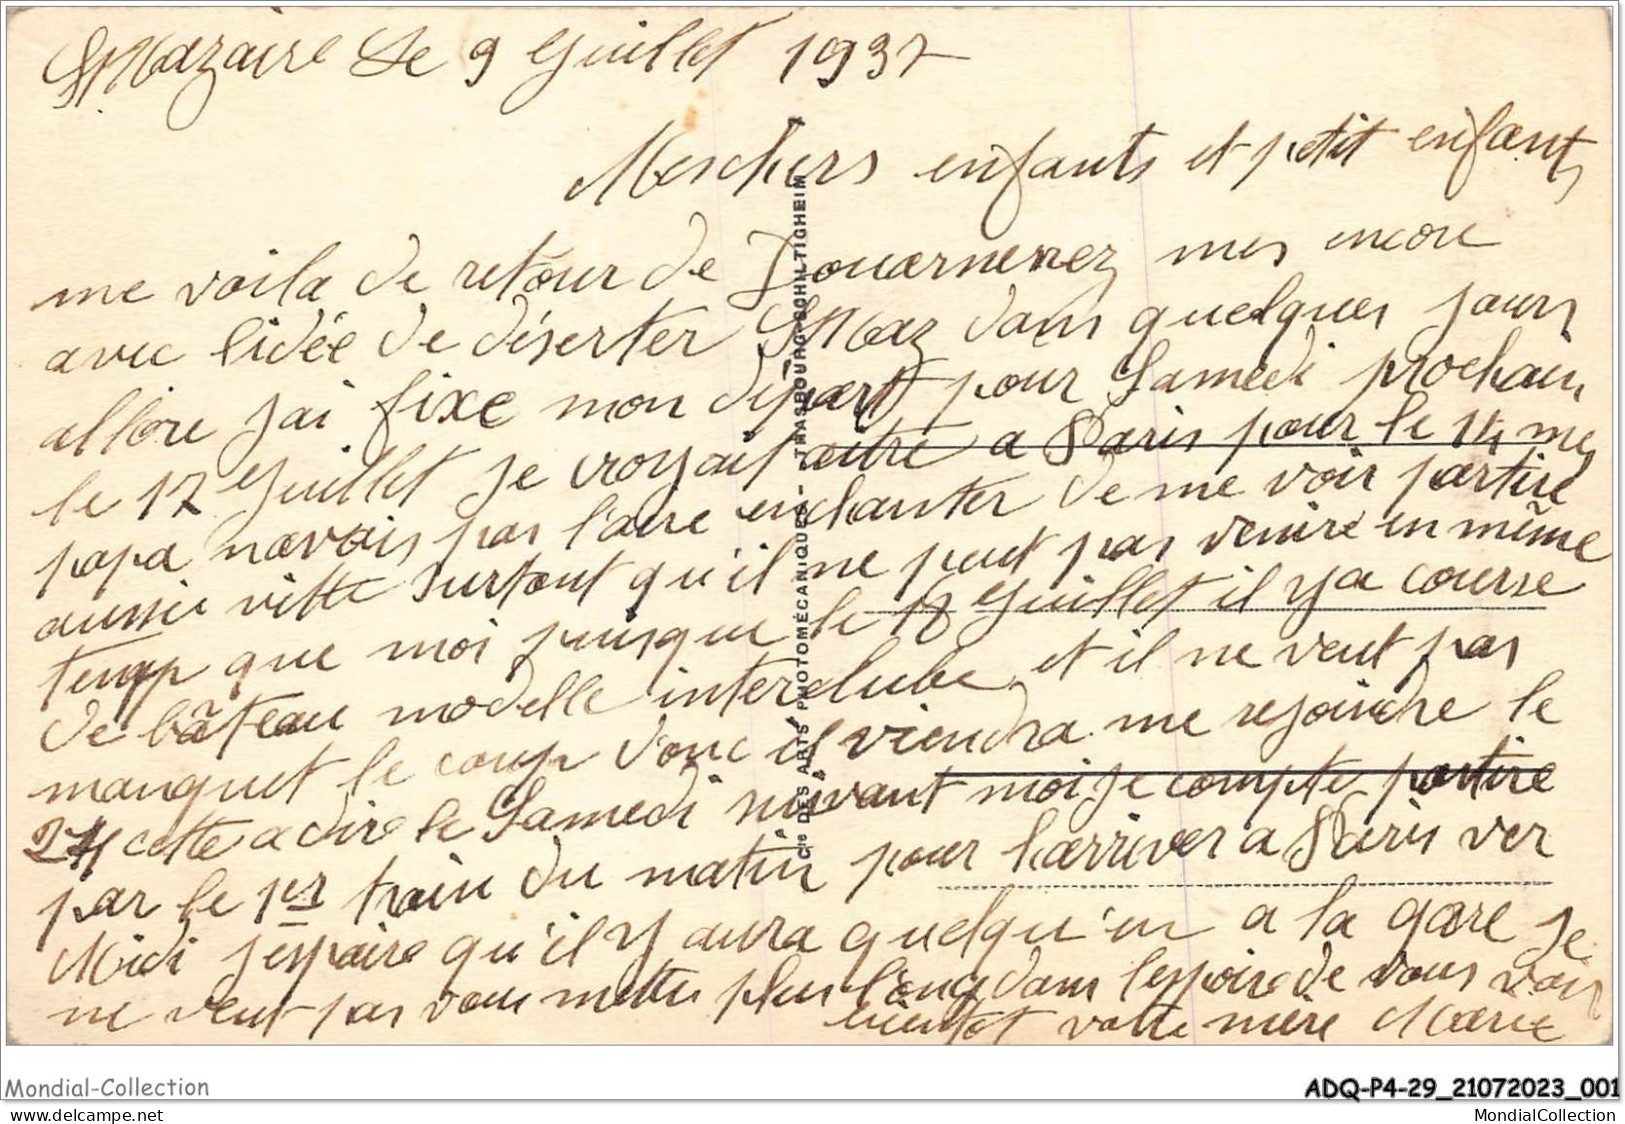 St Nazaire Le 9 Juillet 1937
Mes chers enfants et petit enfants
me voila de retour de Douarnenez mes encore
avec lidée de déserter St Naz dans quelques jours
allore jai fixe mon départ pour Samedi prochain
le 17 Juillet je croyais autre a Paris pour le 14 mes
papa navais pas l'aire enchanter de me voir partire
aussi vitte surtout qu'il ne peut pas venire en même
temp que moi jusque le 18 Juillet il y a course
de bâteau modelle interclube et il ne veut pas
manquet le coup donc il viendra me rejoindre le
24 cette a dire le Samedi suivant moi je compte partire
par le 1er train du matin pour l'arriver a Paris ver
Midi jespaire qu'il y aura quelqu'un a la gare je
ne veut pas vous mettre plus long dans lespoire de vous voir
bientot votre mère Marie
Cie DES ARTS PHOTOMÉCANIQUES - STRASBOURG-SCHILTIGHEIM
Mondial-Collection
ADQ-P4-29_21072023_001
MondialCollection.net
MondialCollection